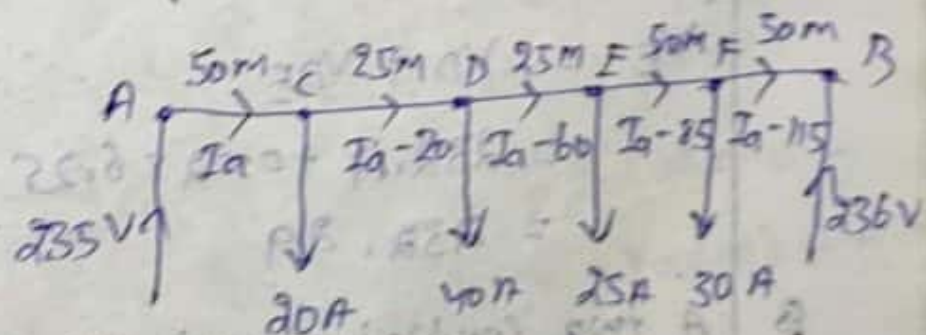 50m C 25m D 25m E 50m F 50m B
A
Ia Ia-20 Ia-60 Ia-85 Ia-115
235V 236V
20A 40A 25A 30A